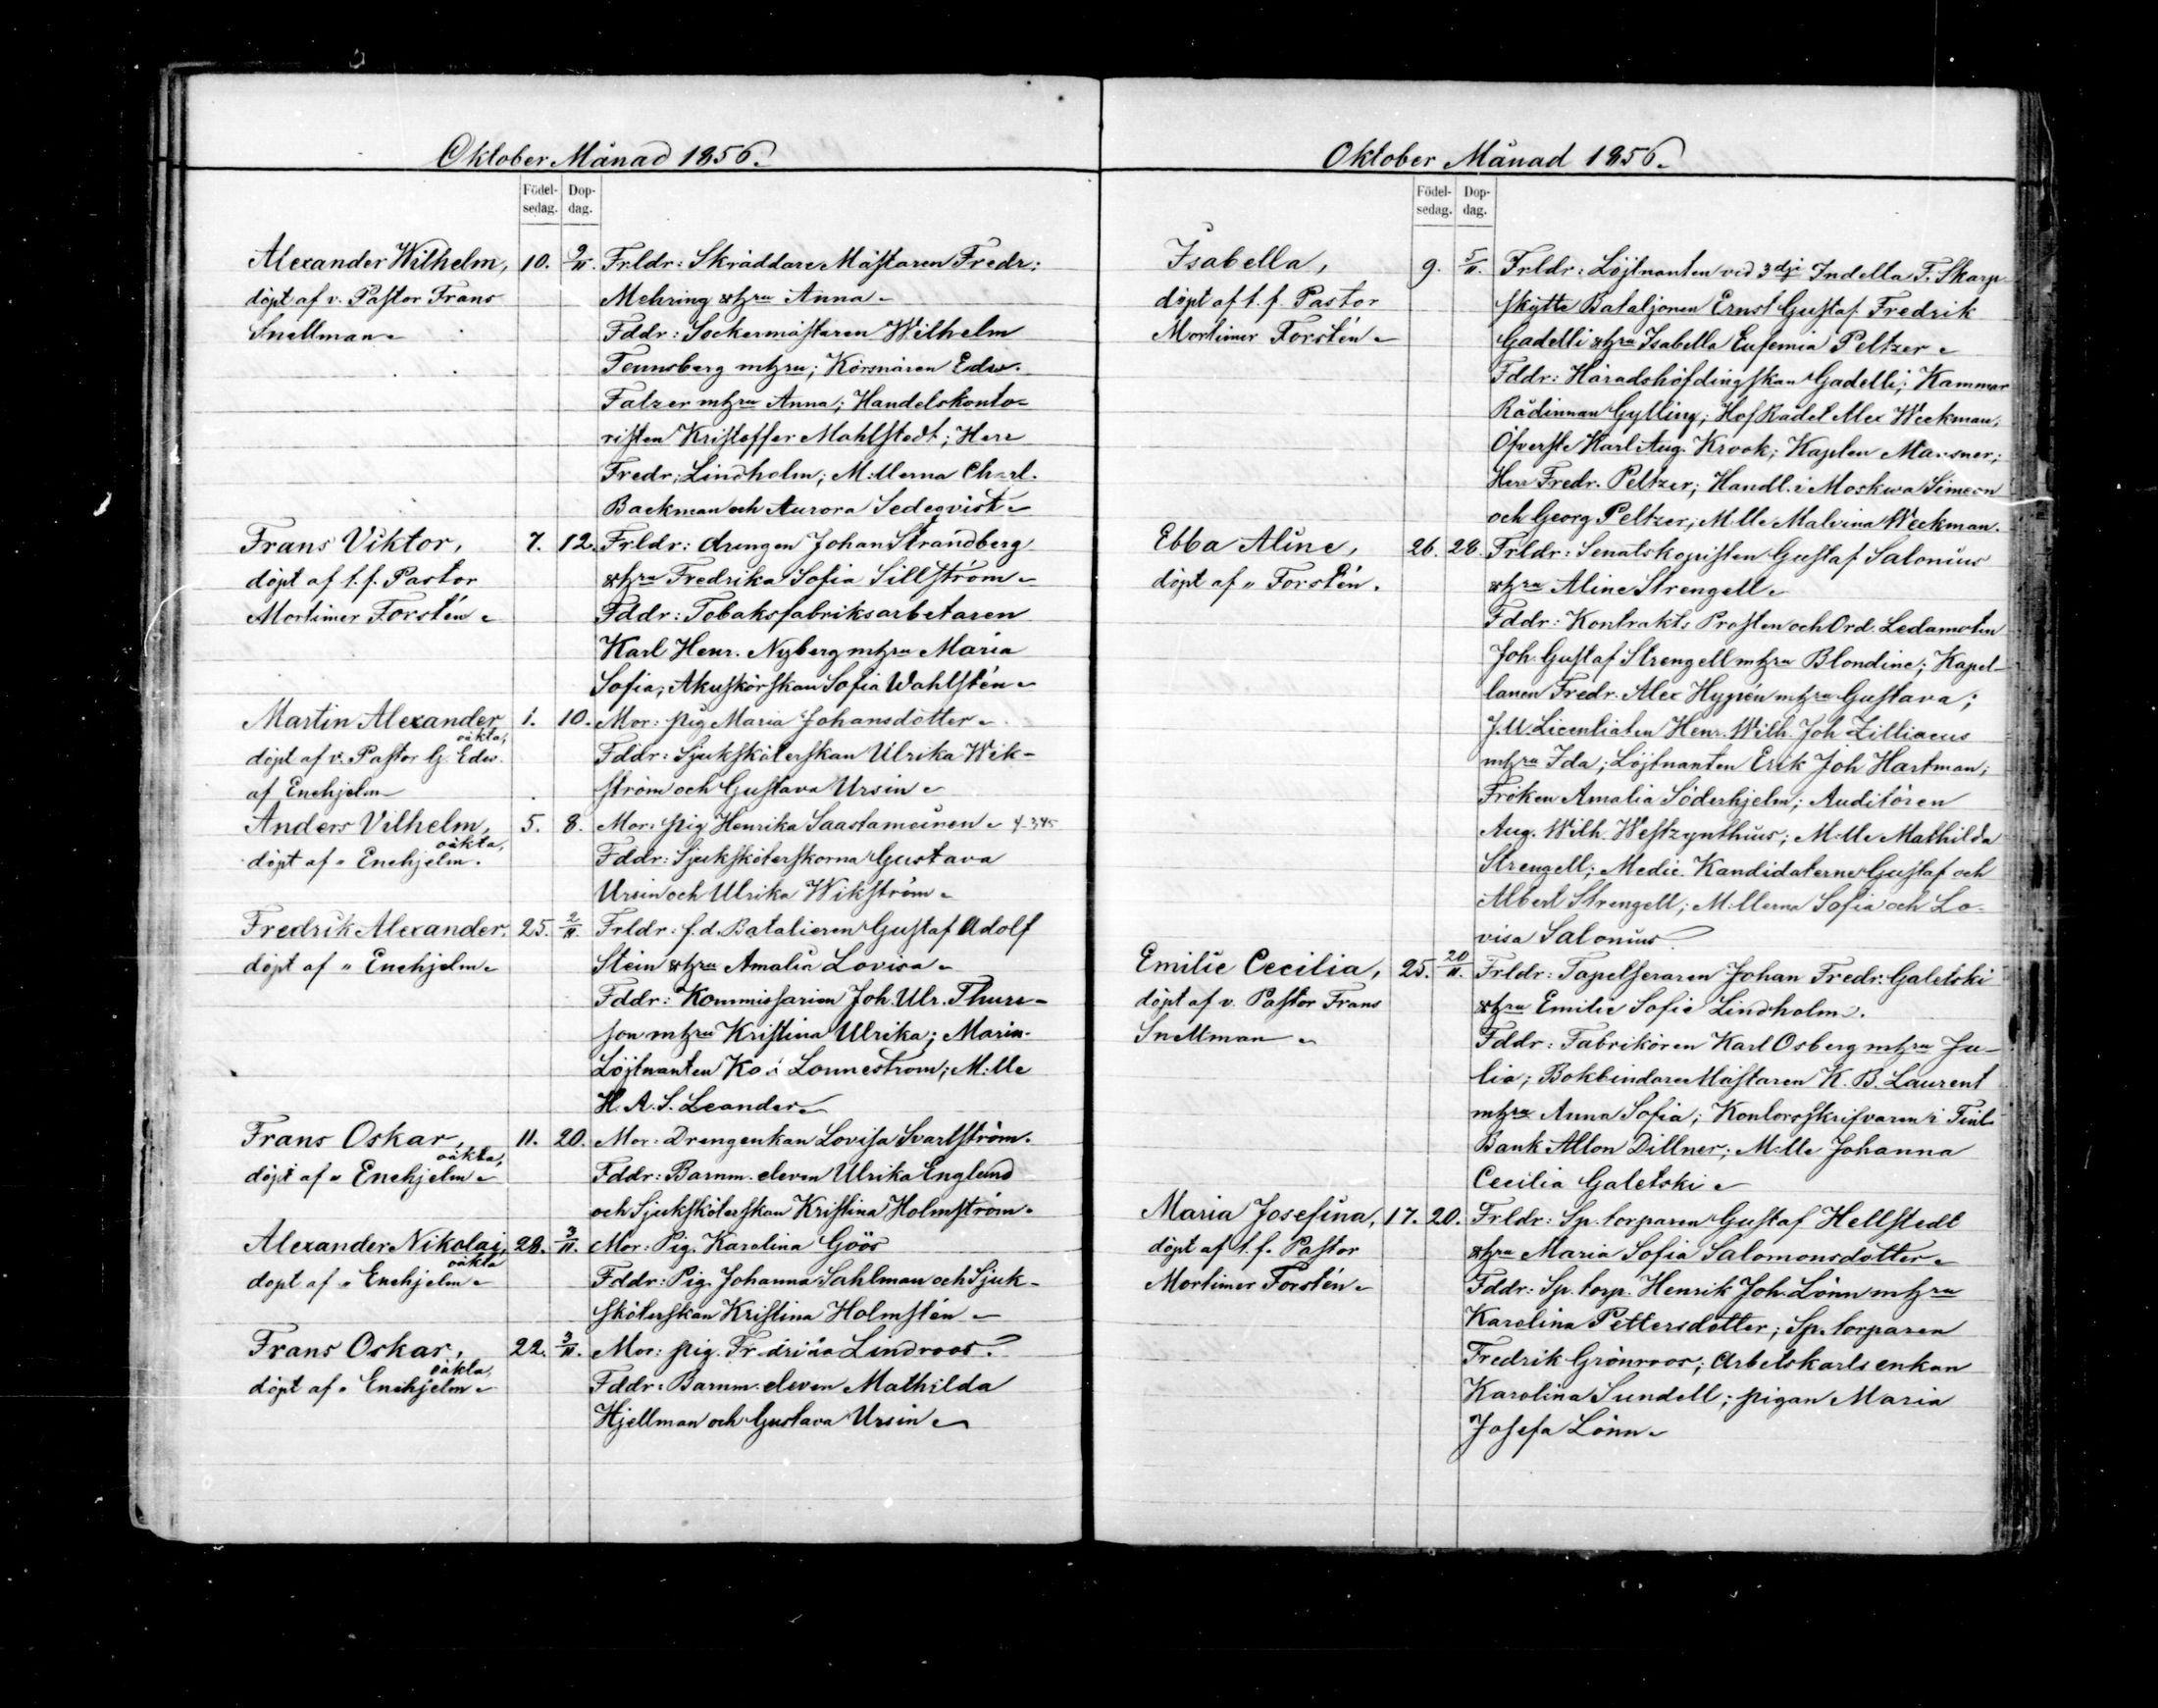 Oktober Månad 1856.
Födel-
sedag.
Dop-
dag.
Alexander Wilhelm,
döpt af v. Pastor Frans
Snellman
10. 9/11.
Frldr: Skräddare Mästaren Fredr:
Mehring o. h. fru Anna
Fddr: Sockermästaren Wilhelm
Tennsberg m. h. fru; Körsnären Edw.
Falzer m. h. fru Anna; Handelskonto-
risten Kristoffer Mahlstedt; Herr
Fredr. Lindholm; M:llerna Charl.
Backman och Aurora Sedeqvist
Frans Viktor,
döpt af t. f. Pastor
Mortimer Forstén
7. 12.
Frldr: drengen Johan Strandberg
o. h. fru Fredrika Sofia Sillström
Fddr: Tobaksfabriksarbetaren
Karl Henr. Nyberg m. h. fru Maria
Sofia; Akuskörskan Sofia Wahlstén
Martin Alexander
oäkta,
döpt af v. Pastor G. Edv.
af Enehjelm
1. 10.
Mor: pig. Maria Johansdotter
Fddr: Sjuksköterskan Ulrika Wik-
ström och Gustava Ursin
Anders Vilhelm,
oäkta,
döpt af " Enehjelm.
5. 8.
Mor: pig Henrika Saastamoinen
Fddr: Sjuksköterskorna Gustava
Ursin och Ulrika Wikström
Fredrik Alexander,
döpt af " Enehjelm
25. 2/11.
Frldr: f.d. Batalieren Gustaf Adolf
Stein o. h. fru Amalia Lovisa
Fddr: Kommissarien Joh. Ulr. Thure-
son m. h. fru Kristina Ulrika; Marin-
Löjtnanten Lonneström; M:lle
H. A. S. Leander
Frans Oskar,
oäkta,
döpt af " Enehjelm
11. 20.
Mor: Drengenkan Lovisa Svartström.
Fddr: Barnm. eleven Ulrika Englund
och Sjuksköterskan Kristina Holmström.
Alexander Nikolai,
oäkta
döpt af " Enehjelm
28. 3/11.
Mor: Pig. Karolina Göös
Fddr: Pig. Johanna Sahlman och Sjuk-
sköterskan Kristina Holmstén
Frans Oskar,
oäkta,
döpt af " Enehjelm
22. 3/11.
Mor: pig. Lindroos.
Fddr: Barnm. eleven Mathilda
Hjellman och Gustava Ursin
Oktober Månad 1856.
Födel-
sedag.
Dop-
dag.
Isabella,
döpt af t. f. Pastor
Mortimer Forstén
9. 5/11.
Frldr: Löjtnanten vid 3dje Indelta F. Skarp
skytte Bataljonen Ernst Gustaf Fredrik
Gadelli o. h. fru Isabella Eufemia Peltzer
Fddr: Häradshöfdingskan Gadelli; Kammar
Rådinnan Gylling; Hof Rådet Alex Weckman;
Öfverste Karl Aug. Krook; Kapten Mausner;
Herr Fredr. Peltzer; Handl. i Moskwa Simeon
och Georg Peltzer; M:lle Malvina Weckman.
Ebba Aline,
döpt af " Forstén.
26. 28.
Frldr: Senatskopisten Gustaf Salonius
o. h. fru Aline Strengell
Fddr: Kontrakts Prosten och Ord. Ledamoten
Joh. Gustaf Strengell m. h. fru Blondine; Kapel-
lanen Fredr. Alex Hyprén m. h. fru Gustava;
J.U. Licentiaten Henr. Wilh. Joh Zilliacus
m. h. fru Ida; Löjtnanten Erik Joh Hartman;
Fröken Amalia Söderhjelm; Auditören
Aug. Wilh. Westzynthius; M:lle Mathilda
Strengell; Medic. Kandidaterne Gustaf och
Albert Strengell; M:llerna Sofia och Lo-
visa Salonius
Emilie Cecilia,
döpt af v. Pastor Frans
Snellman
25. 20/11.
Frldr: Tapetseraren Johan Fredr. Galetski
o. h. fru Emilie Sofie Lindholm.
Fddr: Fabrikören Karl Osberg m. h. fru Ju-
lia; Bokbindare Mästaren K. B. Laurent
m. h. fru Anna Sofia; Kontorsskrifvaren i Finl.
Bank Atlon Dillner; M:lle Johanna
Cecilia Galetski
Maria Josefina,
döpt af t. f. Pastor
Mortimer Forstén
17. 20.
Frldr: Sp. torparen Gustaf Hellstedt
o. h. fru Maria Sofia Salomonsdotter
Fddr: Sp. torp. Henrik Joh. Lönn m. h. fru
Karolina Pettersdotter; Sp. torparen
Fredrik Grönroos; Arbetskarlsenkan
Karolina Sundell; pigan Maria
Josefa Lönn